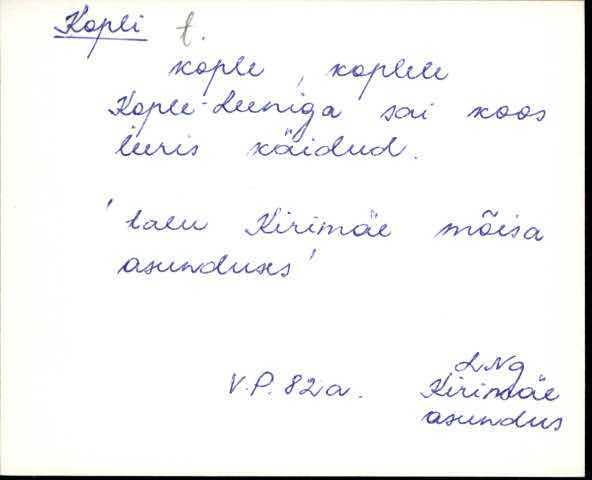 Kopli t.
kople, koplele
Kople-Leeniga sai koos
leeris käidud.
'talu Kirimäe mõisa
asunduses'
LNg
V.P. 82a. Kirimäe
asundus